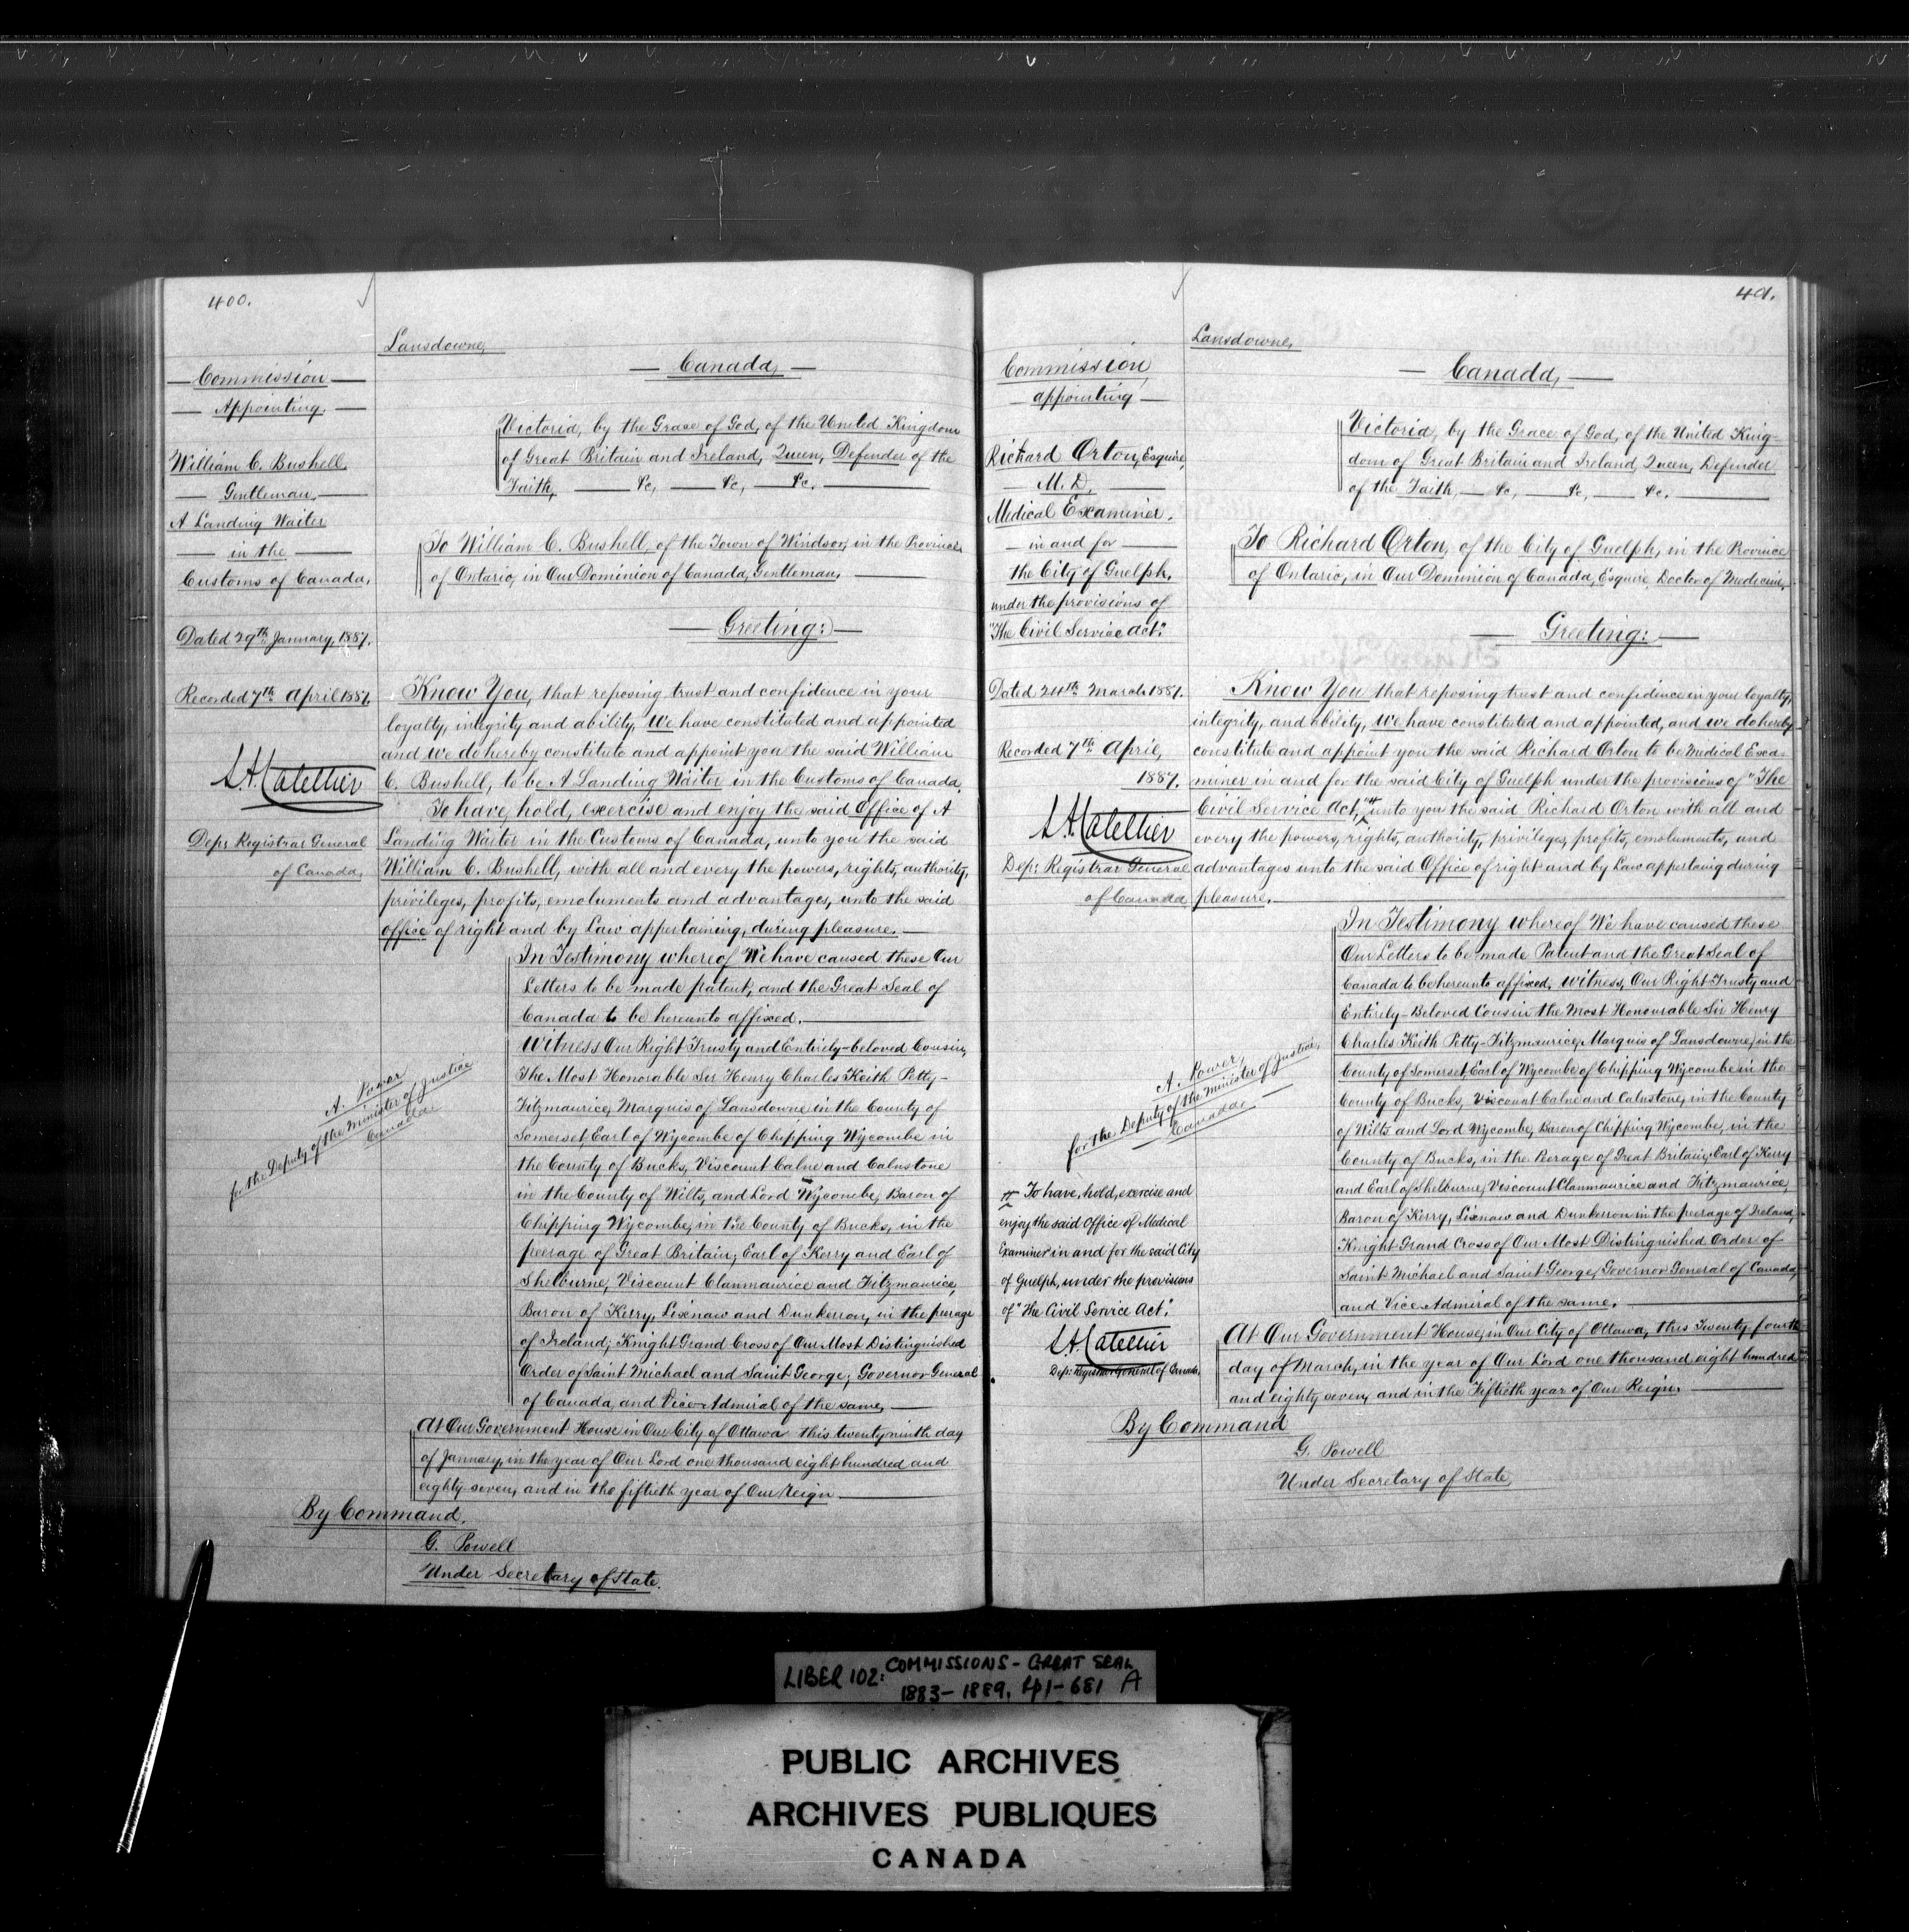 400.
Lansdowne,
— Canada, —
— Commission —
— Appointing, —
William C. Bushell,
— Gentleman, —
A Landing Waiter
— in the —
Customs of Canada,
Dated 29th January, 1887.
Recorded 7th April 1887,
L.A. Catellier
Dep: Registrar General
of Canada,
Victoria, by the Grace of God, of the United Kingdom
of Great Britain and Ireland, Queen, Defender of the
Faith, — &c, — &c, — &c. —
To William C. Bushell, of the Town of Windsor, in the Province
of Ontario, in Our Dominion of Canada, Gentleman, —
— Greeting: —
Know You, that reposing trust and confidence in your
loyalty, integrity and ability, We have constituted and appointed
and we do hereby constitute and appoint you the said William
C. Bushell, to be A Landing Waiter in the Customs of Canada,
To have, hold, exercise and enjoy the said Office of A
Landing Waiter in the Customs of Canada, unto you the said
William C. Bushell, with all and every the powers, rights, authority,
privileges, profits, emoluments and advantages, unto the said
office of right and by Law appertaining, during pleasure. —
In Testimony whereof We have caused these Our
Letters to be made patent, and the Great Seal of
Canada to be hereunto affixed. —
Witness Our Right Trusty and Entirely-beloved Cousin,
The Most Honorable Sir Henry Charles Keith Petty-
Fitzmaurice, Marquis of Lansdowne in the County of
Somerset, Earl of Wycombe of Chipping Wycombe in
the County of Bucks, Viscount Calne and Calnstone
in the County of Wilts, and Lord Wycombe, Baron of
Chipping Wycombe, in the County of Bucks, in the
peerage of Great Britain; Earl of Kerry and Earl of
Shelburne, Viscount Clanmaurice and Fitzmaurice,
Baron of Kerry, Lixnaw and Dunkerron, in the peerage
of Ireland; Knight Grand Cross of Our Most Distinguished
Order of Saint Michael and Saint George; Governor General
of Canada, and Vice-Admiral of the same, —
A. Power
for the Deputy of the Minister of Justice
Canada
At Our Government House in Our City of Ottawa this twenty ninth day
of January, in the year of Our Lord one thousand eight hundred and
eighty seven, and in the fiftieth year of Our Reign —
By Command.
G. Powell
Under Secretary of State.
401.
Lansdowne,
— Canada, —
Commission,
— appointing —
Richard Orton, Esquire,
— M. D, —
Medical Examiner.
— in and for —
the City of Guelph,
under the provisions of
"The Civil Service Act."
Dated 24th March 1887.
Recorded 7th April,
1887.
L.A. Catellier
Dep: Registrar General
of Canada,
Victoria, by the Grace of God, of the United King-
dom of Great Britain and Ireland, Queen, Defender
of the Faith, — &c, — &c, — &c. —
To Richard Orton, of the City of Guelph, in the Province
of Ontario, in Our Dominion of Canada, Esquire, Doctor of Medicine,
— Greeting: —
Know You that reposing trust and confidence in your loyalty,
integrity, and ability, We have constituted and appointed, and we do hereby
constitute and appoint you the said Richard Orton to be Medical Exa-
miner in and for the said City of Guelph under the provisions of "The
Civil Service Act," # unto you the said Richard Orton with all and
every the powers, rights, authority, privileges, profits, emoluments, and
advantages unto the said Office of right and by Law appertaing during
pleasure. —
In Testimony whereof We have caused these
Our Letters to be made Patent and the Great Seal of
Canada to be hereunto affixed, Witness, Our Right Trusty and
Entirely-Beloved Cousin the Most Honourable Sir Henry
Charles Keith Petty-Fitzmaurice, Marquis of Lansdowne, in the
County of Somerset, Earl of Wycombe of Chipping Wycombe in the
County of Bucks, Viscount Calne and Calnstone, in the County
of Wilts and Lord Wycombe, Baron of Chipping Wycombe, in the
County of Bucks, in the Peerage of Great Britain; Earl of Kerry
and Earl of Shelburne, Viscount Clanmaurice and Fitzmaurice,
Baron of Kerry, Lixnaw and Dunkerron in the peerage of Ireland,
Knight Grand Cross of Our Most Distinguished Order of
Saint Michael and Saint George, Governor General of Canada,
and Vice Admiral of the same. —
A. Power,
for the Deputy of the Minister of Justice,
Canada, —
# To have, hold, exercise and
enjoy the said Office of Medical
Examiner in and for the said City
of Guelph, under the provisions
of "the Civil Service Act."
L.A. Catellier
Dep: Registrar General of Canada,
At Our Government House, in Our City of Ottawa, this Twenty fourth
day of March, in the year of Our Lord one thousand eight hundred
and eighty seven, and in the Fiftieth year of Our Reign. —
By Command
G. Powell
Under Secretary of State
LIBER 102: COMMISSIONS - GREAT SEAL
1883-1889, pp1-681 A
PUBLIC ARCHIVES
ARCHIVES PUBLIQUES
CANADA